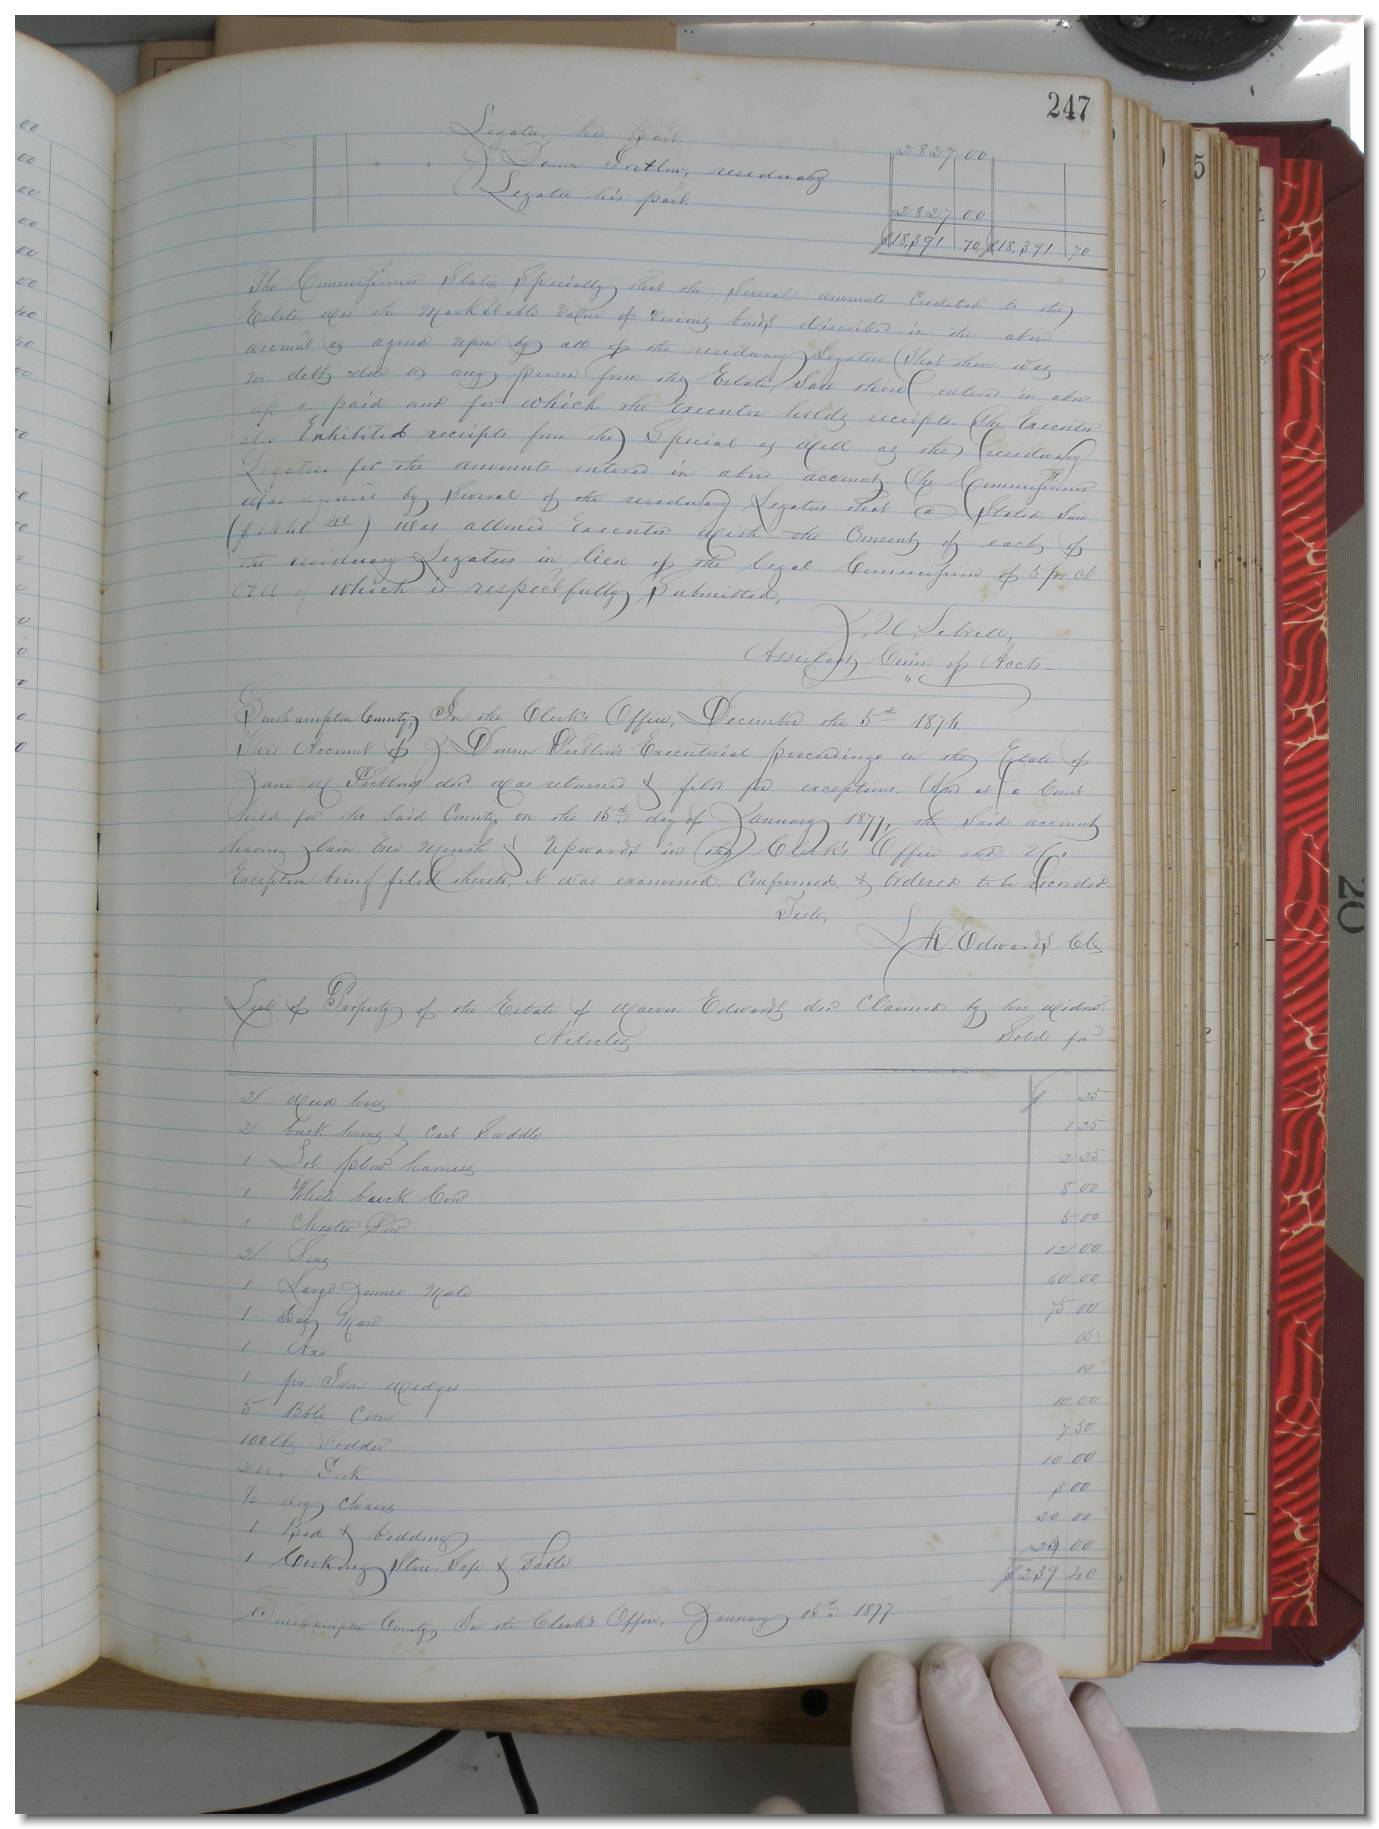 247
Legatee, her part. 2827 00
residuary
Legatee his part. 2827 00
$18,391 70 $18,391 70
The Commissioner States Specially that the Several amounts Credited to the
Estate was the Marketable Value of Various bonds described in the above
account as agreed upon by all of the residuary Legatees. That there was
no debts due by any person from the Estate, Save those entered in above
as paid and for which the Executor holds receipts. The Executor
also Exhibited receipts from the Special as well as the residuary
Legatees for the amounts entered in above account. The Commissioner
was by Several of the residuary Legatees that a Stated Sum
was allowed Executor with the Consent of each of
the residuary Legatees in lieu of the legal Commissions of 5 pr ct
All of which is respectfully Submitted,
Assistant Comr. of Accts.
Southampton County, In the Clerk's Office, December the 5th 1876.
This Account of Executorial proceedings on the Estate of
Jane dec. was returned & filed for exceptions. And at a Court
held for the Said County on the 15th day of January 1877, the Said account
having lain one Month & Upwards in the Clerk's Office and No
Exception being filed thereto, it was examined, Confirmed, & Ordered to be Recorded.
Teste,
L. R. Edwards Clk
List of Property of the Estate of Edwards dec. Claimed by his widow.
Articles Sold for
2 weed hoes $ 25
2 back & Cart Saddle 1 25
1 Lot plow harness 2 25
1 White back Cow 8 00
1 Chester Sow 5 00
2 12 00
1 Large Mule 40 00
1 Bay Mare 75 00
1 Axe 05
1 pr Iron wedges 10
5 Bbls Corn 10 00
Fodder 7 50
Pork 10 00
1/2 doz chairs 3 00
1 Bed & bedding 20 00
1 Cooking Stove, Safe & Table 00
$239 40
Southampton County, In the Clerk's Office, January 15th 1877